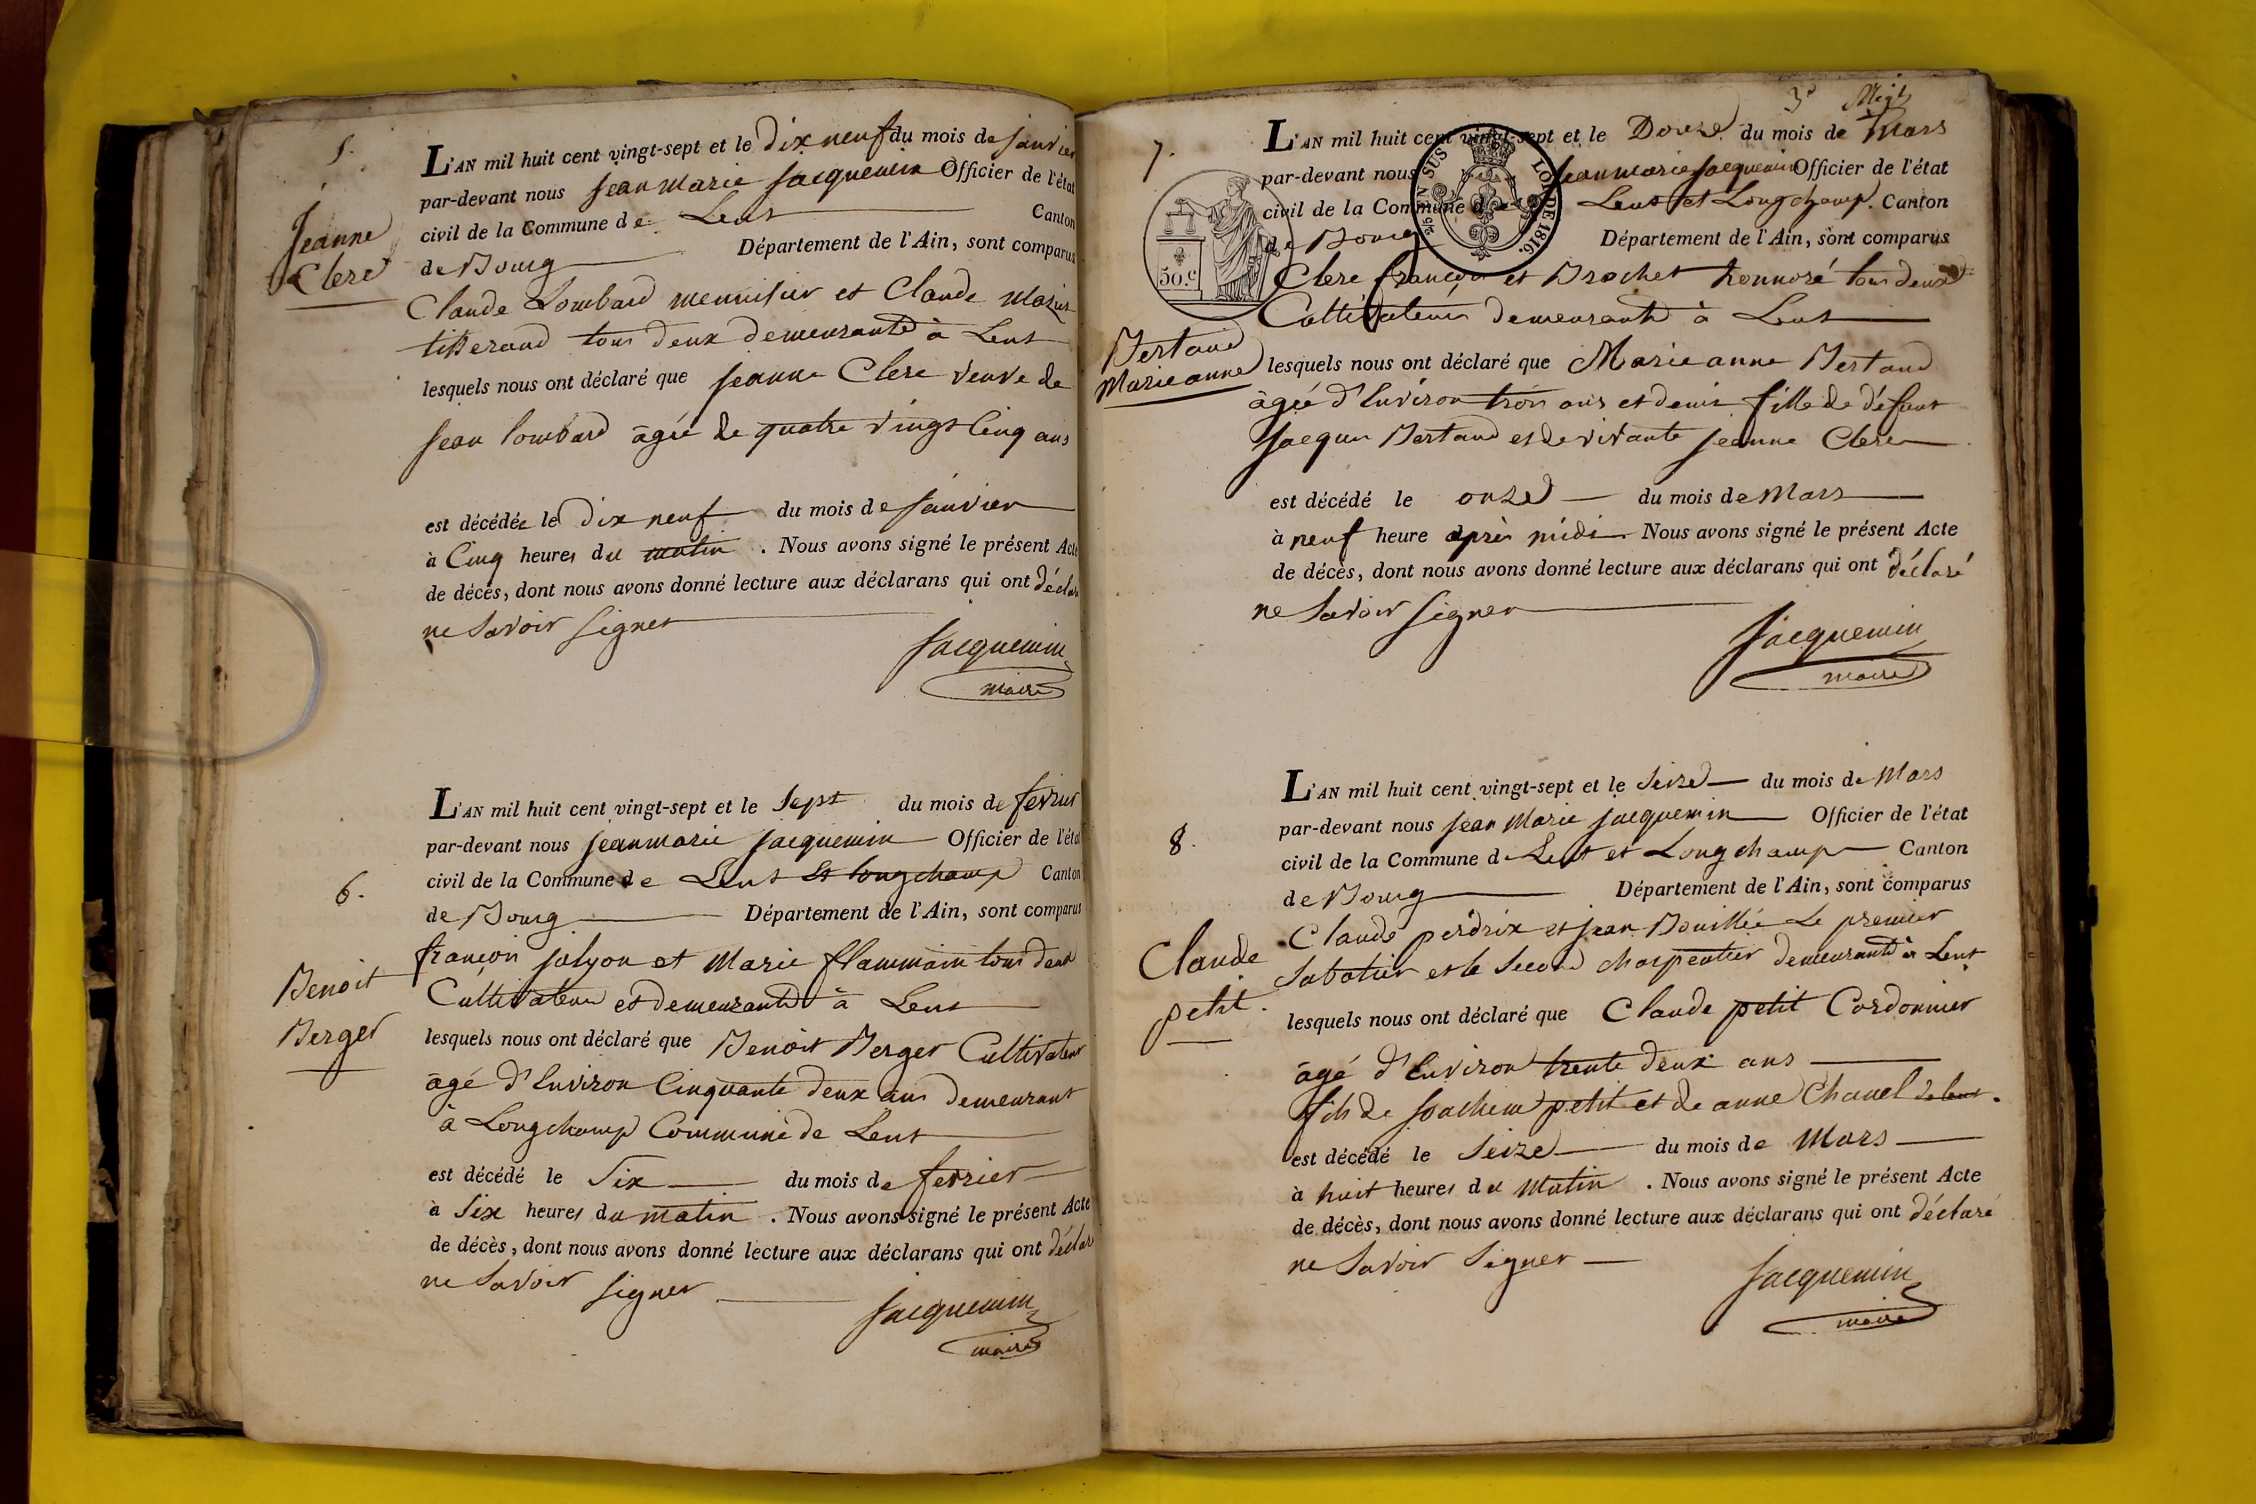 5.
Jeanne
Clere
L'AN mil huit cent vingt-sept et le dix neuf du mois de janvier
par-devant nous jean marie jacquemin Officier de l'état
civil de la Commune de Lent Canton
de Bourg Département de l'Ain, sont comparus
Claude Lombard menuisier et Claude
titserand tous deux demeurants à Lent
lesquels nous ont déclaré que jeanne Clere veuve de
jean lombard âgée de quatre vingt Cinq ans
est décédée le dix neuf du mois de janvier
à Cinq heures du matin. Nous avons signé le présent Acte
de décès, dont nous avons donné lecture aux déclarans qui ont déclaré
ne Savoir Signer
jacquemin
maire
6.
Benoit
Berger
L'AN mil huit cent vingt-sept et le Sept du mois de fevrier
par-devant nous jean marie jacquemin Officier de l'état
civil de la Commune de Lent et longchamp Canton
de Bourg Département de l'Ain, sont comparus
françois jolyon et Marie flammain tous deux
Cultivateurs et demeurants à Lent
lesquels nous ont déclaré que Benoit Berger Cultivateur
âgé d'Environ Cinquante deux ans demeurant
à Longchamp Commune de Lent
est décédé le Six du mois de fevrier
à Six heures du matin. Nous avons signé le présent Acte
de décès, dont nous avons donné lecture aux déclarans qui ont déclaré
ne Savoir Signer
jacquemin
maire
7.
50.c
EN SUS
LOI DE 1816.
Bertaud
Marie anne
L'AN mil huit cent vingt-sept et le Douze du mois de Mars
par-devant nous jean marie jacquemin Officier de l'état
civil de la Commune de Lent et Longchamp. Canton
de Bourg Département de l'Ain, sont comparus
Clere françois et Brochet honnoré tous deux
Cultivateurs demeurants à Lent
lesquels nous ont déclaré que Marie anne Bertaud
âgée d'Environ trois ans et demi fille de défunt
jacques Bertaud et de vivante jeanne Clere
est décédé le onze du mois de Mars
à neuf heure après midi Nous avons signé le présent Acte
de décès, dont nous avons donné lecture aux déclarans qui ont déclaré
ne Savoir Signer
jacquemin
maire
8.
Claude
petit.
L'AN mil huit cent vingt-sept et le Seize du mois de Mars
par-devant nous jean Marie jacquemin Officier de l'état
civil de la Commune de Lent et Longchamp Canton
de Bourg Département de l'Ain, sont comparus
Claude perdrix et jean Bouillée Le premier
Sabotier et le Second charpentier demeurants à Lent
lesquels nous ont déclaré que Claude petit Cordonnier
âgé d'Environ trente deux ans
fils de joachim petit et de anne Chanel de lent.
est décédé le Seize du mois de Mars
à huit heures du Matin. Nous avons signé le présent Acte
de décès, dont nous avons donné lecture aux déclarans qui ont déclaré
ne Savoir Signer
jacquemin
maire